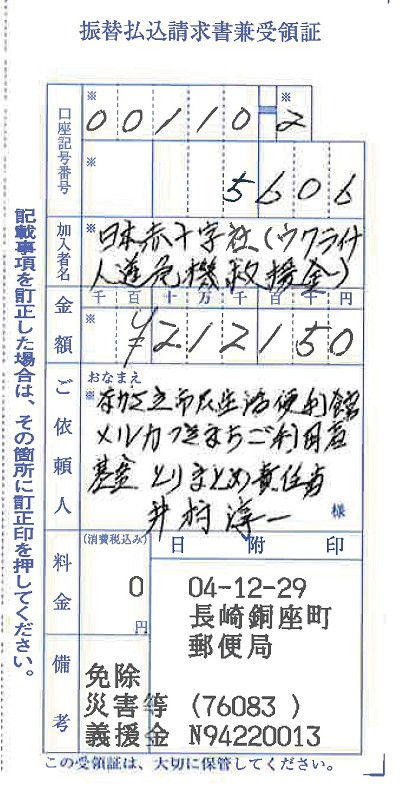 振替払込請求書兼受領証
口座記号番号
※
00110-2
※
※
5606
加入者名
※日本赤十字社(ウクライナ
人道危機救援金)
金額
千百十万千百十円
※
¥212150
ご依頼人
おなまえ
※
市民生活便利館
メルカつきまちご利用店
基金 とりまとめ責任者
井村淳一
様
料金
(消費税込み)
0
円
日附印
04-12-29
長崎銅座町
郵便局
備考
免除
災害等 (76083 )
義援金 N94220013
この受領証は、大切に保管してください。
記載事項を訂正した場合は、その箇所に訂正印を押してください。